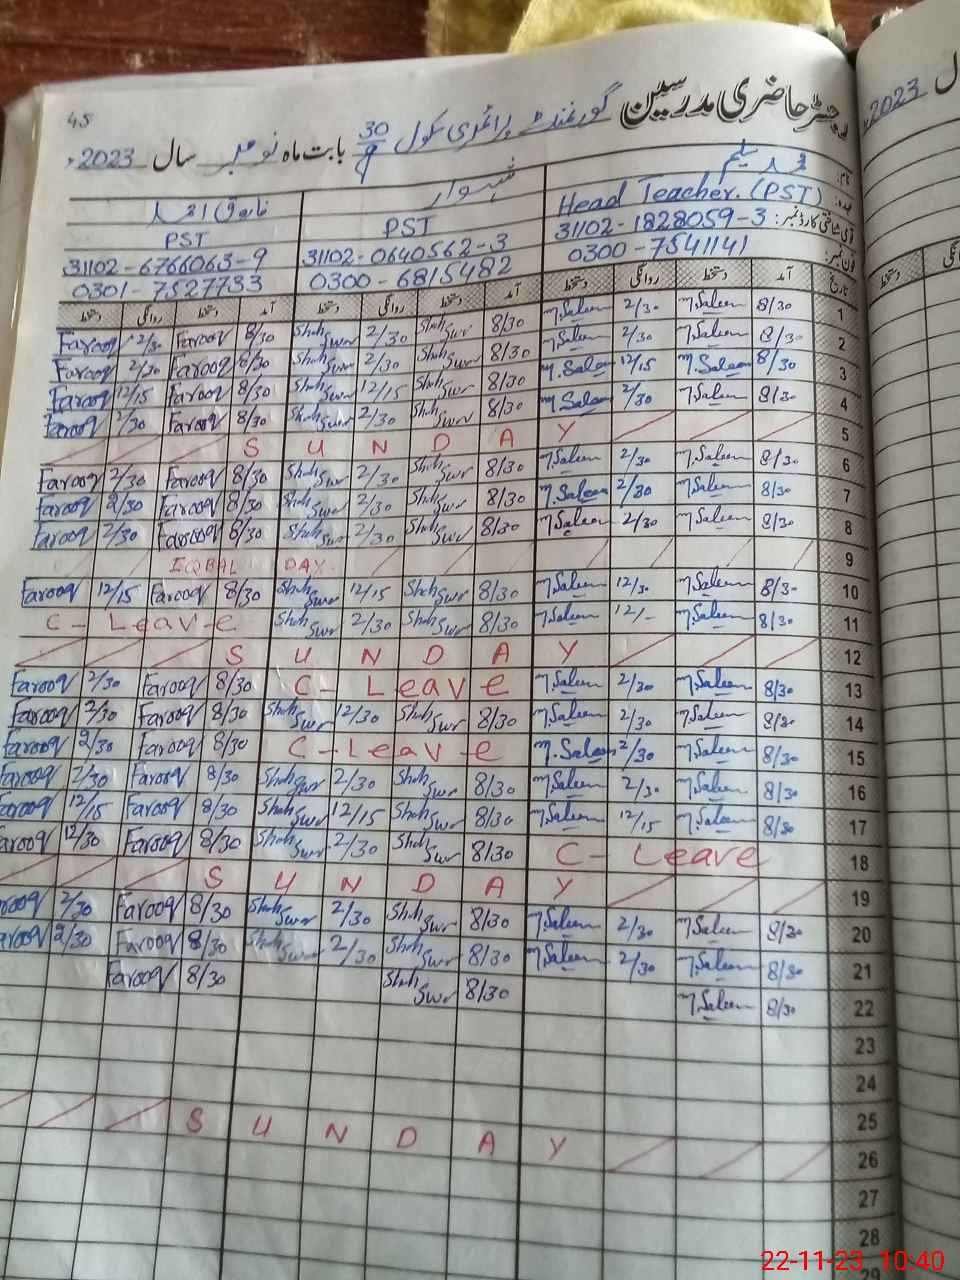 45
رجسٹر حاضری مدرسین گورنمنٹ پرائمری سکول 30/ بابت ماہ نومبر سال 2023ء
2023ء
نام: محمد سلیم شہوار فاروق احمد
عہدہ: Head Teacher. (PST) PST PST
قومی شناختی کارڈ نمبر: 31102-1828059-3 31102-0640562-3 31102-6766063-9
فون نمبر: 0300-7541141 0300-6815482 0301-7527733
تاریخ آمد دستخط روانگی دستخط آمد دستخط روانگی دستخط آمد دستخط روانگی دستخط
Farooq 2/30 Farooq 8/30 Shah Swr 2/30 Shah Swr 8/30 M.Saleem 2/30 M.Saleem 8/30 1
Farooq 2/30 Farooq 8/30 Shah Swr 2/30 Shah Swr 8/30 M.Saleem 2/30 M.Saleem 8/30 2
Farooq 12/15 Farooq 8/30 Shah Swr 12/15 Shah Swr 8/30 M.Saleem 12/15 M.Saleem 8/30 3
Farooq 2/30 Farooq 8/30 Shah Swr 2/30 Shah Swr 8/30 M.Saleem 2/30 M.Saleem 8/30 4
S U N D A Y 5
Farooq 2/30 Farooq 8/30 Shah Swr 2/30 Shah Swr 8/30 M.Saleem 2/30 M.Saleem 8/30 6
Farooq 2/30 Farooq 8/30 Shah Swr 2/30 Shah Swr 8/30 M.Saleem 2/30 M.Saleem 8/30 7
Farooq 2/30 Farooq 8/30 Shah Swr 2/30 Shah Swr 8/30 M.Saleem 2/30 M.Saleem 8/30 8
IQBAL DAY 9
Farooq 12/15 Farooq 8/30 Shah Swr 12/15 Shah Swr 8/30 M.Saleem 12/30 M.Saleem 8/30 10
C- Leave Shah Swr 2/30 Shah Swr 8/30 M.Saleem 12/- M.Saleem 8/30 11
S U N D A Y 12
Farooq 2/30 Farooq 8/30 C- Leave M.Saleem 2/30 M.Saleem 8/30 13
Farooq 2/30 Farooq 8/30 Shah Swr 12/30 Shah Swr 8/30 M.Saleem 2/30 M.Saleem 8/30 14
Farooq 2/30 Farooq 8/30 C-Leave M.Saleem 2/30 M.Saleem 8/30 15
Farooq 2/30 Farooq 8/30 Shah Swr 2/30 Shah Swr 8/30 M.Saleem 2/30 M.Saleem 8/30 16
Farooq 12/15 Farooq 8/30 Shah Swr 12/15 Shah Swr 8/30 M.Saleem 12/15 M.Saleem 8/30 17
arooq 12/30 Farooq 8/30 Shah Swr 2/30 Shah Swr 8/30 C- Leave 18
S U N D A Y 19
rooq 2/30 Farooq 8/30 Shah Swr 2/30 Shah Swr 8/30 M.Saleem 2/30 M.Saleem 8/30 20
arooq 2/30 Farooq 8/30 Shah Swr 2/30 Shah Swr 8/30 M.Saleem 2/30 M.Saleem 8/30 21
Farooq 8/30 Shah Swr 8/30 M.Saleem 8/30 22
23
24
25
S U N D A Y 26
27
28
29
22-11-23 10:40